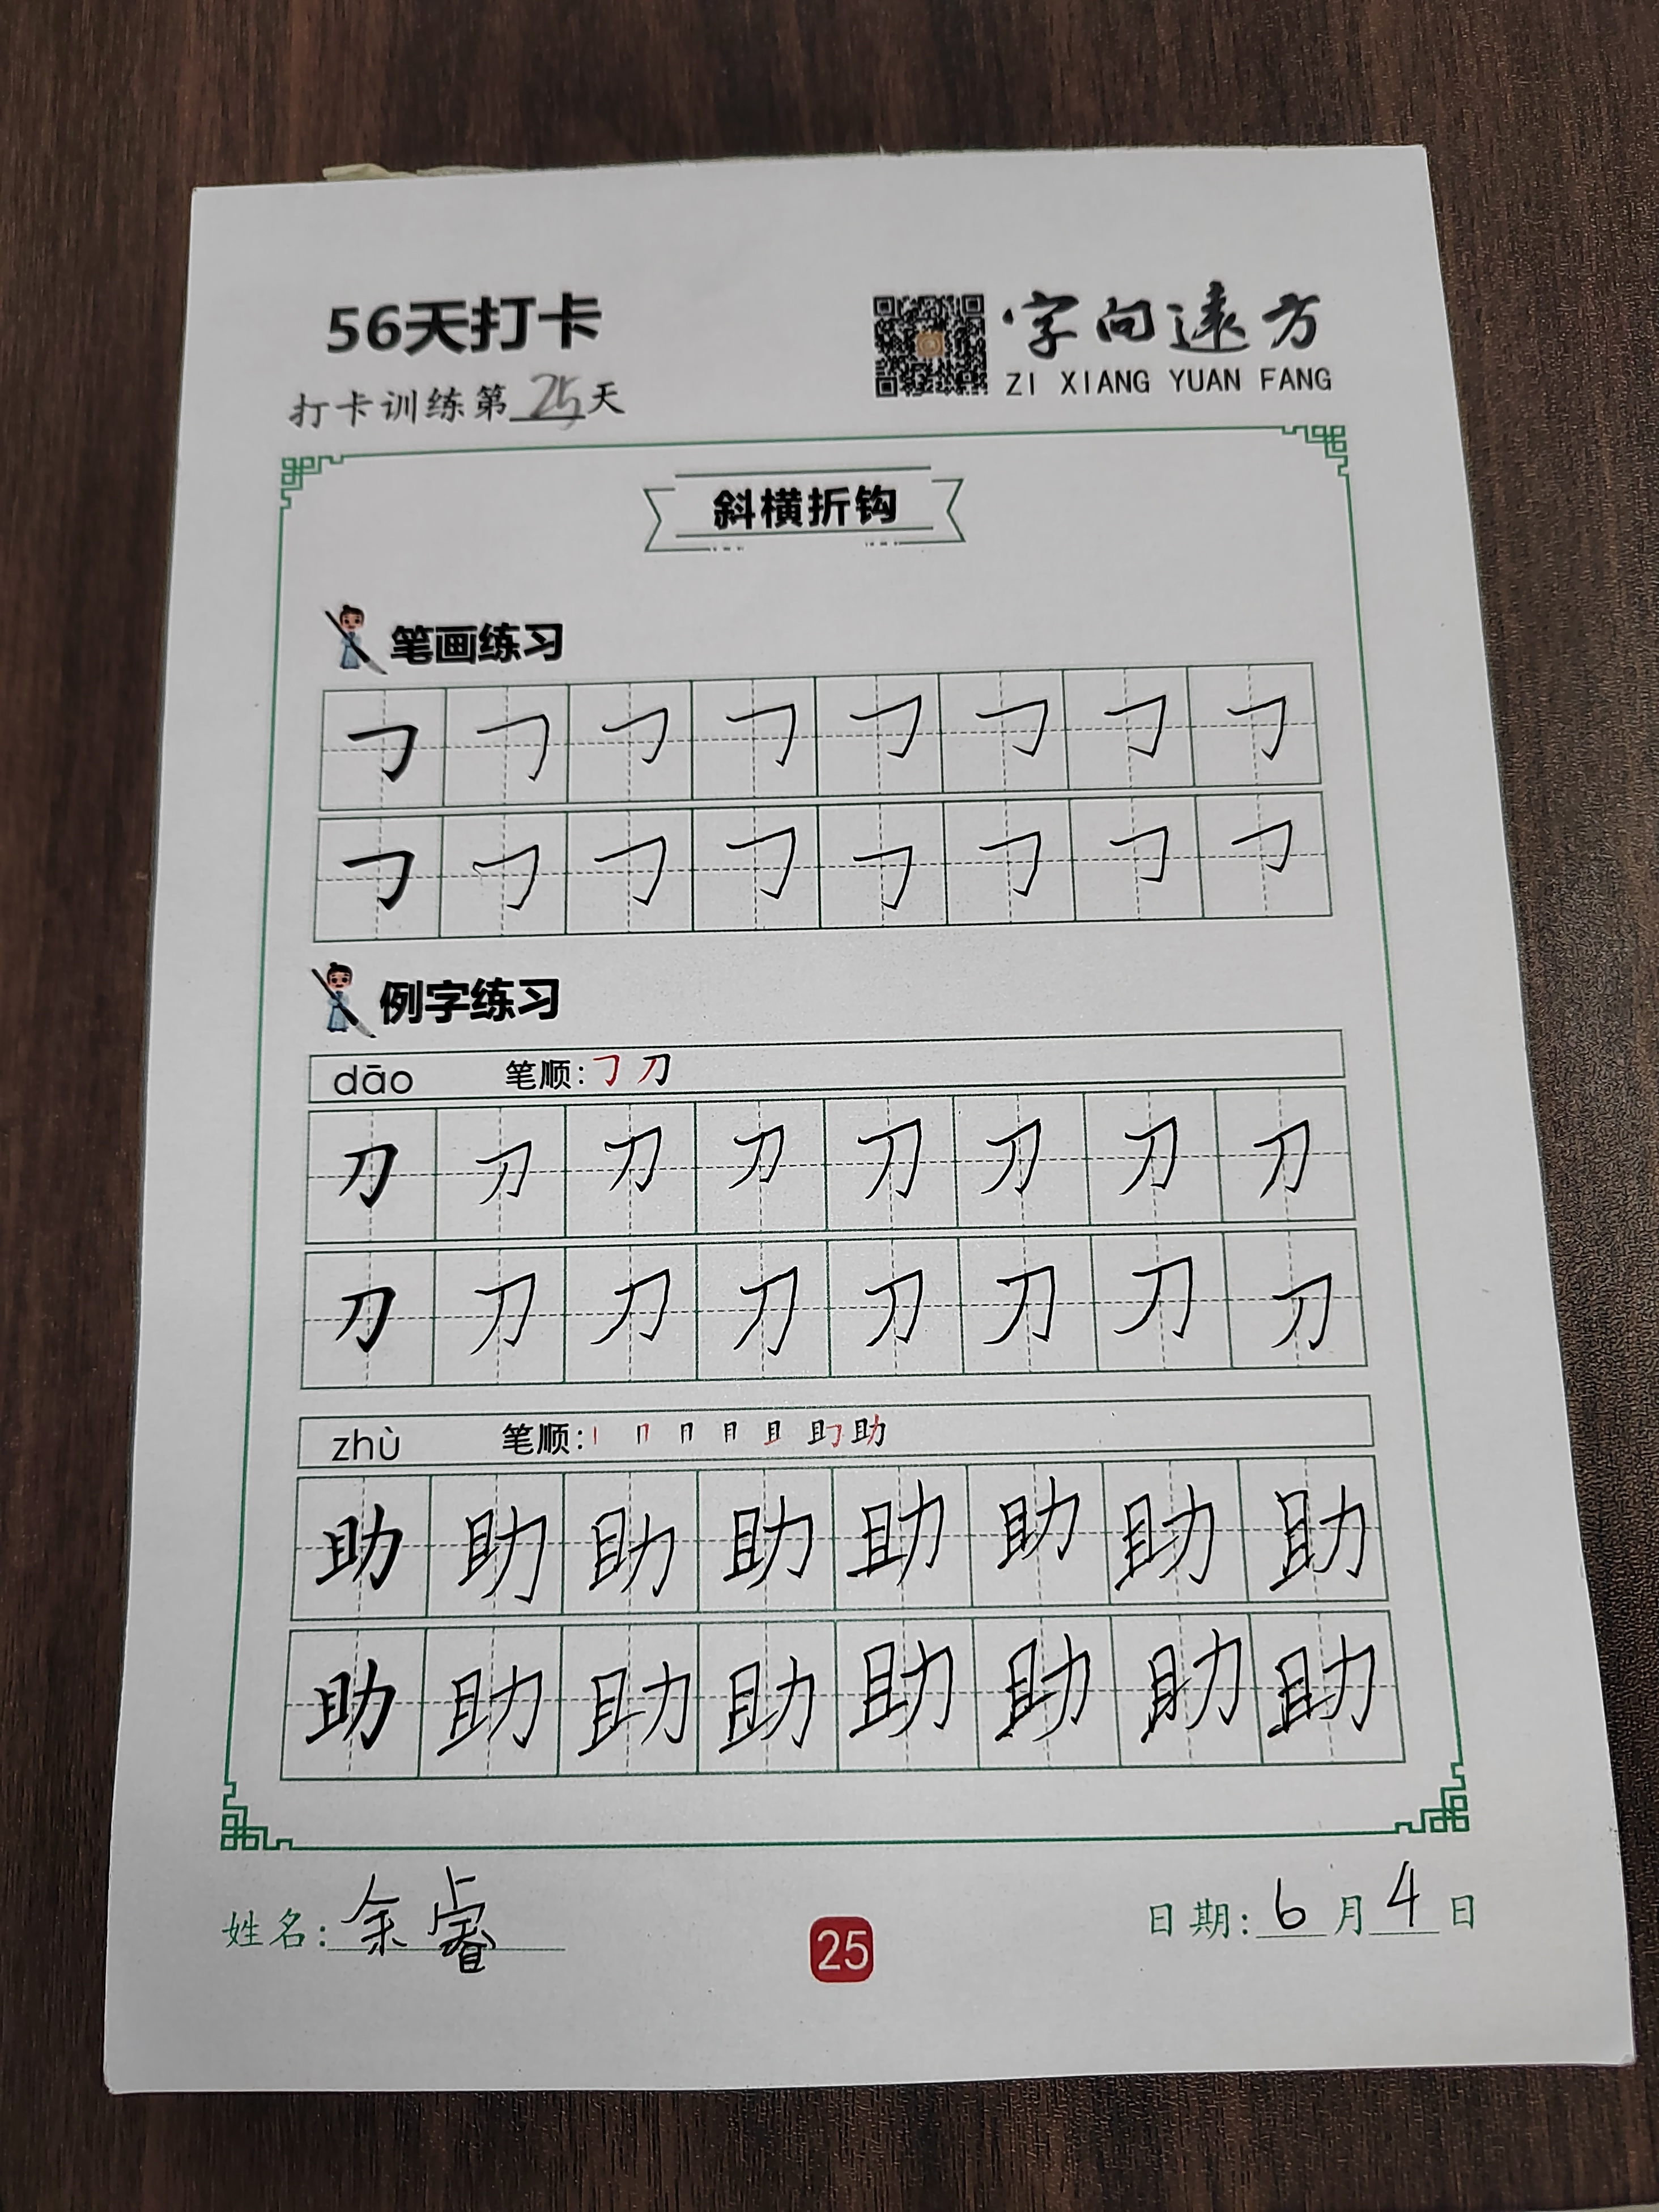 56天打卡
字向远方
ZI XIANG YUAN FANG
打卡训练第25天
斜横折钩
笔画练习
𠃌 𠃌 𠃌 𠃌 𠃌 𠃌 𠃌 𠃌
𠃌 𠃌 𠃌 𠃌 𠃌 𠃌 𠃌 𠃌
例字练习
dāo 笔顺: 𠃌 刀
刀 刀 刀 刀 刀 刀 刀 刀
刀 刀 刀 刀 刀 刀 刀 刀
zhù 笔顺: 丨 冂 冃 月 且 助 助
助 助 助 助 助 助 助 助
助 助 助 助 助 助 助 助
姓名: 余睿
25
日期: 6月4日